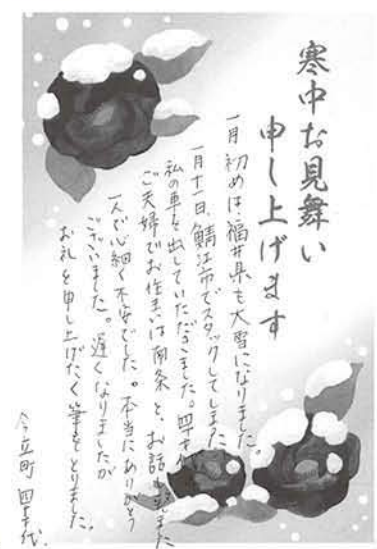 寒中お見舞い
申し上げます
一月初めは福井県も大雪になりました。
一月十一日、鯖江市でスタックしてしまった
私の車を出していただきました。四十代
ご夫婦でお住まいは南条と、お話しました
一人で心細く不安でした。本当にありがとう
ございました。遅くなりましたが
お礼を申し上げたく筆をとりました。
今立町 四十代